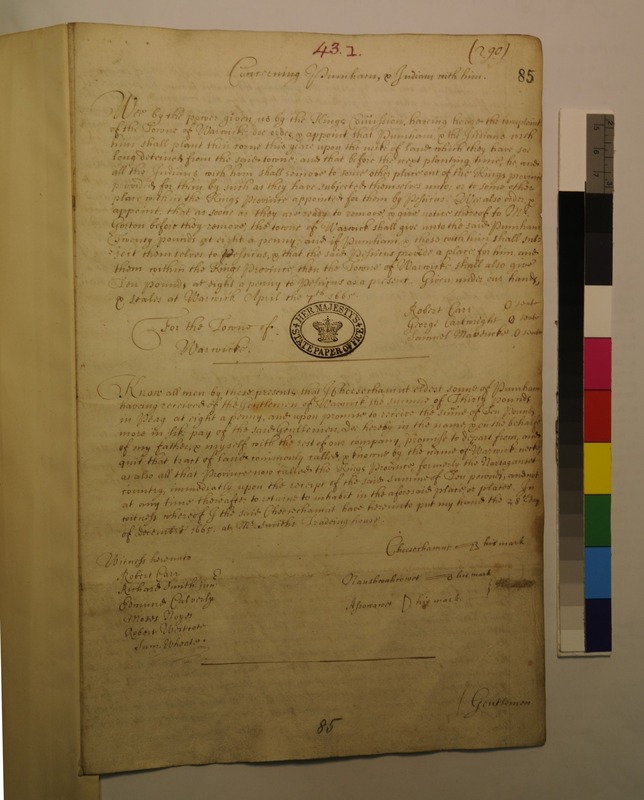 43. 1.
(290)
85
Concerning Pumham, & Indians with him.
Wee by the power given us by the Kings Com̄ission, having heard the complaint
of the Towne of Warwick doe order & appoint that Pumham, & the Indians with
him shall plant their corne this yeare upon the neck of land which they have soe
long deteined from the said towne, and that before the next planting time, he and
all the Indians with him shall remove to some other place out of the Kings province
provided for them by such as they have subjected themselves unto, or to some other
place within the Kings Province appointed for them by Pesicus. We also order &
appoint, that as soone as they are ready to remove, & give notice thereof to Mr
Gorton before they remove, the towne of Warwick shall give unto the said Pumham
Twenty pounds at eight a penny; and if Pumham, & those with him shall sub-
ject themselves to Pesicus, & that the said Pesicus provide a place for him, and
them within the Kings Province then the Towne of Warwick shall also give
Ten pounds at eight a penny to Pesicus as a present. Given under our hands,
& seales at Warwick April the 7th 1665.
Robert Carr O seale
George Cartwright O seale
Samuel Mavericke O seale
For the Towne of
Warwicke.
HER MAJESTY'S
STATE PAPER OFFICE
Know all men by these presents, that I Cheesechamut eldest sonne of Pumham
having received of the Gentlemen of Warwick the summe of Thirty pounds
in Peag at eight a penny, and upon promise to receive the sume of Ten pounds
more in like pay of the said Gentlemen, doe hereby in the name, & on the behalfe
of my father, & myself, with the rest of our company, promise to depart from, and
quit that tract of land com̄only called & knowne by the name of Warwick neck
as also all that Province now called the Kings Province, formerly the Narraganset
country, im̄ediatly upon the receipt of the said summe of Ten pounds, and not
at any time thereafter to returne to inhabit in the aforesaid place, or places. In
witness whereof I the said Cheesechamut have hereunto put my hand the 28th day
of decembr 1665. at Mr Smiths Trading house.
Cheesechamut his mark
Witness hereunto
Robert Carr
Richard Smith junr
Edmund Calverly
Moses
Robert Westcote
Sam. Wheaton
his mark
his mark
Gentlemen
85